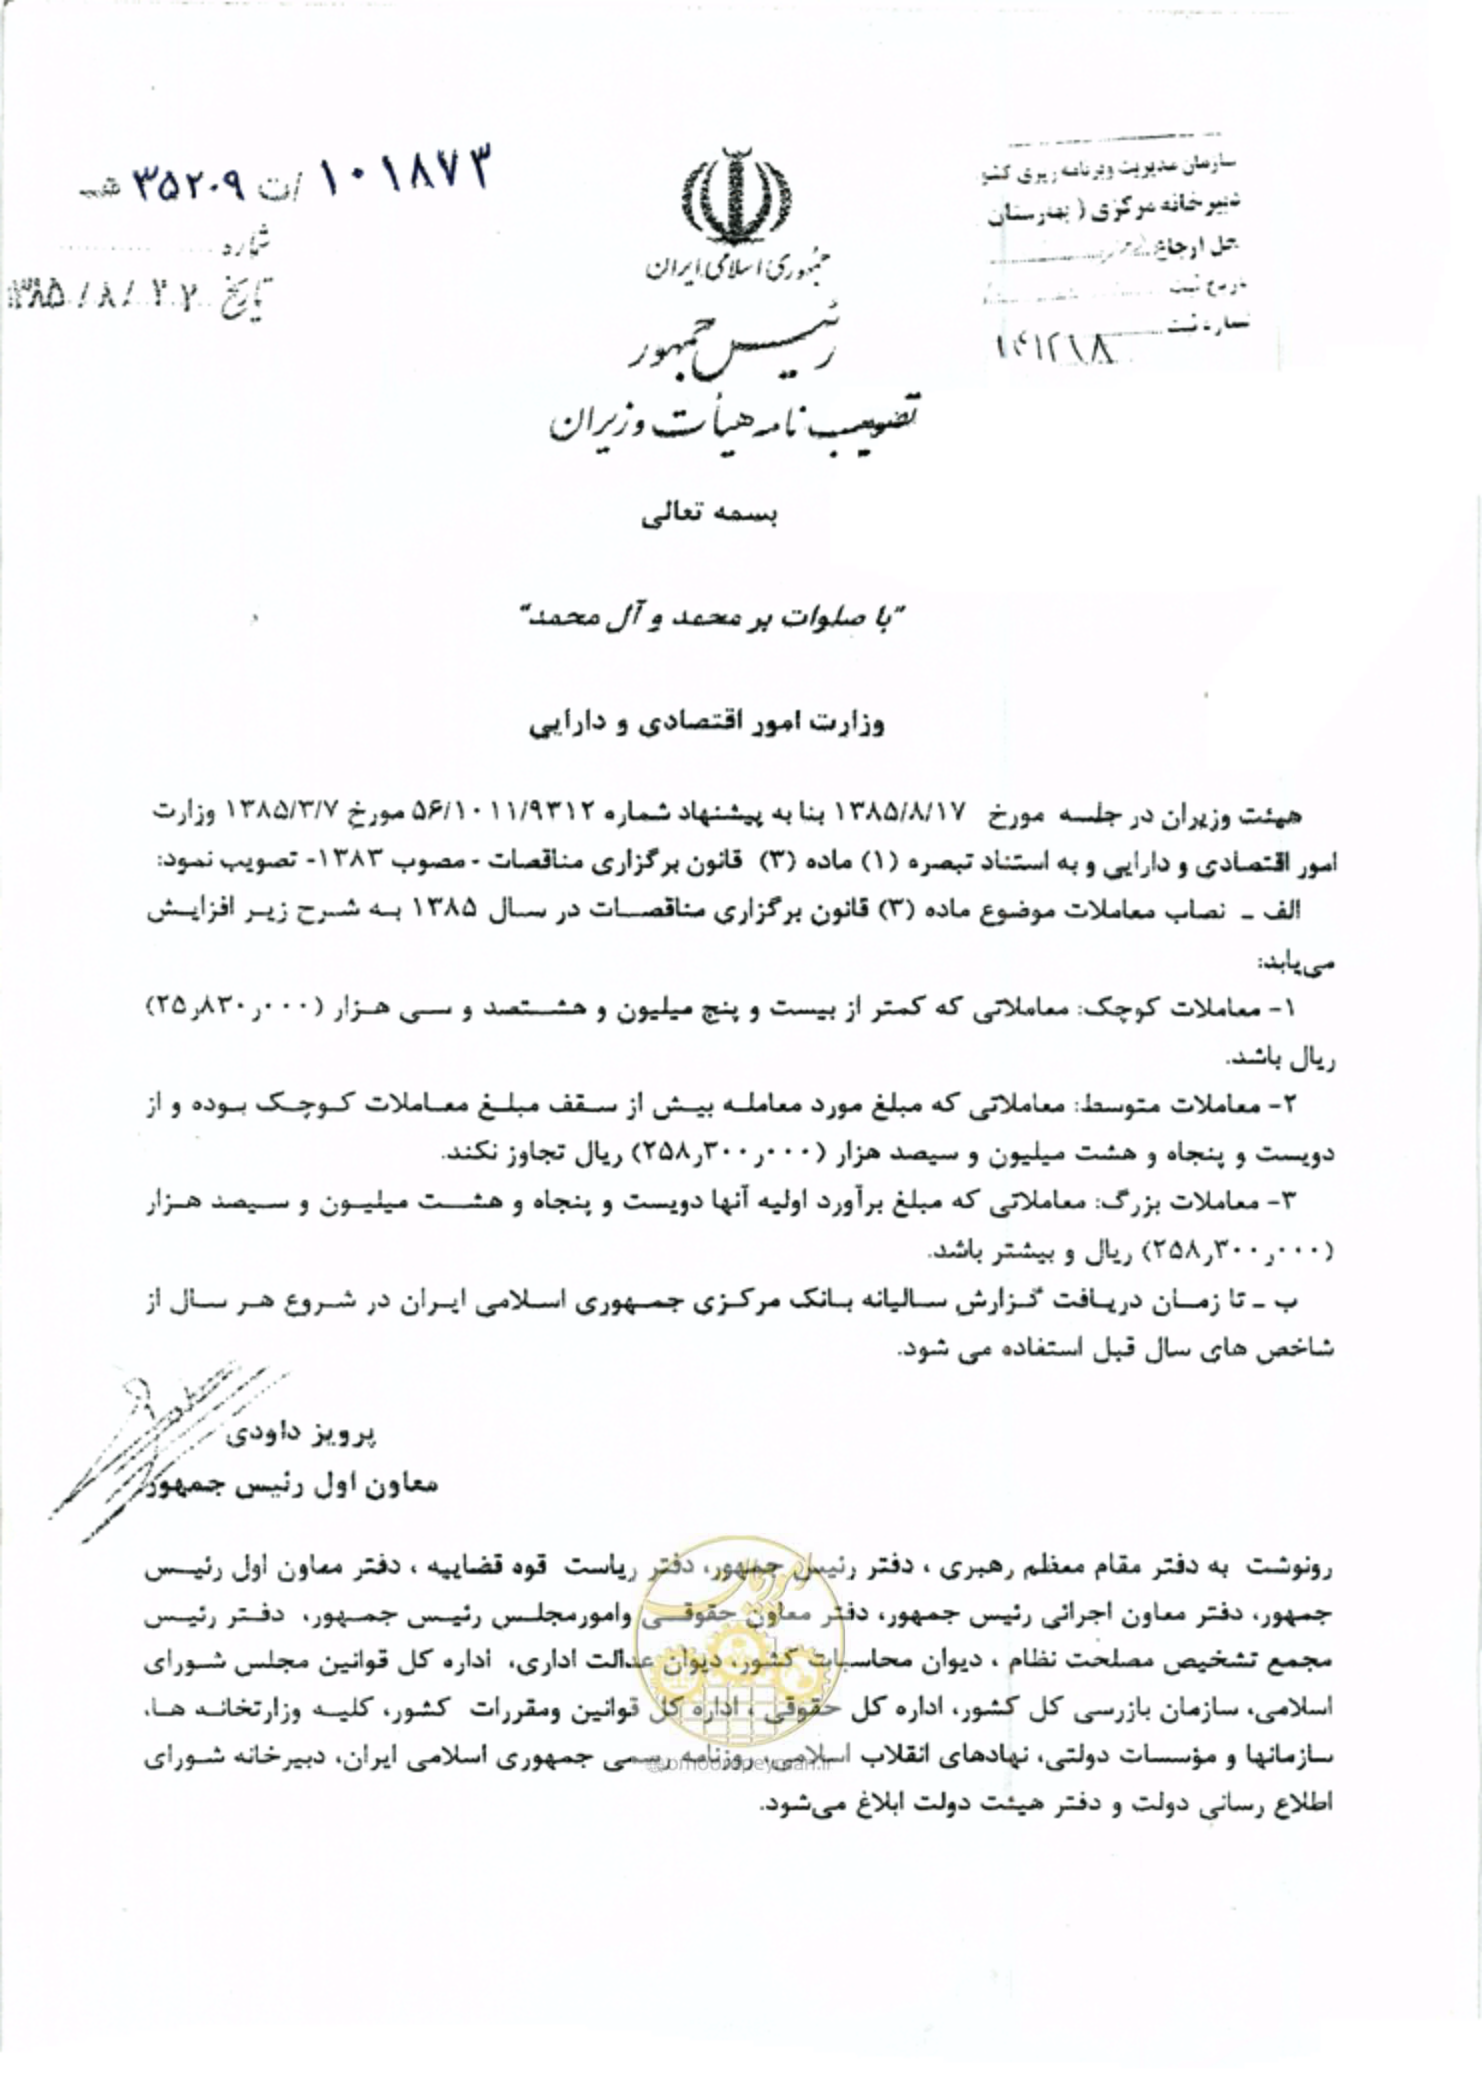 ۱۰۱۸۷۳ /ت ۳۵۲۰۹ هـ
شماره
تاریخ ۱۳۸۵/۸/۲۲
سازمان مدیریت وبرنامه ریزی کشور
دبیرخانه مرکزی ( بهارستان
محل ارجاع
تاریخ ثبت
شماره ثبت
جمهوری اسلامی ایران
رئیس جمهور
تصویب نامه هیأت وزیران
بسمه تعالی
"با صلوات بر محمد و آل محمد"
وزارت امور اقتصادی و دارایی
هیئت وزیران در جلسه مورخ ۱۳۸۵/۸/۱۷ بنا به پیشنهاد شماره ۵۶/۱۰۱۱/۹۳۱۲ مورخ ۱۳۸۵/۳/۷ وزارت
امور اقتصادی و دارایی و به استناد تبصره (۱) ماده (۳) قانون برگزاری مناقصات - مصوب ۱۳۸۳- تصویب نمود:
الف ـ نصاب معاملات موضوع ماده (۳) قانون برگزاری مناقصات در سال ۱۳۸۵ به شرح زیر افزایش
می‌یابد:
۱- معاملات کوچک: معاملاتی که کمتر از بیست و پنج میلیون و هشتصد و سی هزار (۲۵٫۸۳۰٫۰۰۰)
ریال باشد.
۲- معاملات متوسط: معاملاتی که مبلغ مورد معامله بیش از سقف مبلغ معاملات کوچک بوده و از
دویست و پنجاه و هشت میلیون و سیصد هزار (۲۵۸٫۳۰۰٫۰۰۰) ریال تجاوز نکند.
۳- معاملات بزرگ: معاملاتی که مبلغ برآورد اولیه آنها دویست و پنجاه و هشت میلیون و سیصد هزار
(۲۵۸٫۳۰۰٫۰۰۰) ریال و بیشتر باشد.
ب ـ تا زمان دریافت گزارش سالیانه بانک مرکزی جمهوری اسلامی ایران در شروع هر سال از
شاخص های سال قبل استفاده می شود.
پرویز داودی
معاون اول رئیس جمهور
رونوشت به دفتر مقام معظم رهبری ، دفتر رئیس جمهور، دفتر ریاست قوه قضاییه ، دفتر معاون اول رئیس
جمهور، دفتر معاون اجرائی رئیس جمهور، دفتر معاون حقوقی وامورمجلس رئیس جمهور، دفتر رئیس
مجمع تشخیص مصلحت نظام ، دیوان محاسبات کشور، دیوان عدالت اداری، اداره کل قوانین مجلس شورای
اسلامی، سازمان بازرسی کل کشور، اداره کل حقوقی ، اداره کل قوانین ومقررات کشور، کلیه وزارتخانه ها،
سازمانها و مؤسسات دولتی، نهادهای انقلاب اسلامی، روزنامه رسمی جمهوری اسلامی ایران، دبیرخانه شورای
اطلاع رسانی دولت و دفتر هیئت دولت ابلاغ می‌شود.
امور پیمان
@omoorepeyman.ir